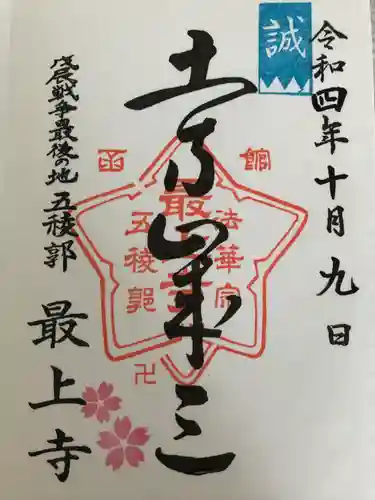 令和四年十月九日
誠
土方歳三
函館
最上寺
法華宗
五稜郭
卍
戊辰戦争最後の地 五稜郭
最上寺